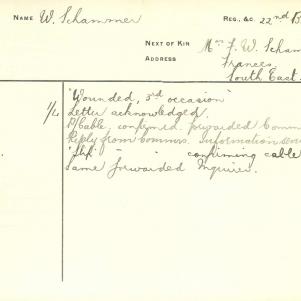 NAME W. Schammer REG., &C. 22nd B
NEXT OF KIN Mrs J. W. Scham
ADDRESS Frances
South East
1/4 "Wounded, 3rd occasion"
Letter acknowledged.
P/Cable, confirmed, forwarded Comm
Reply from Commrs. Information
" " confirming cable
same forwarded Inquirer.